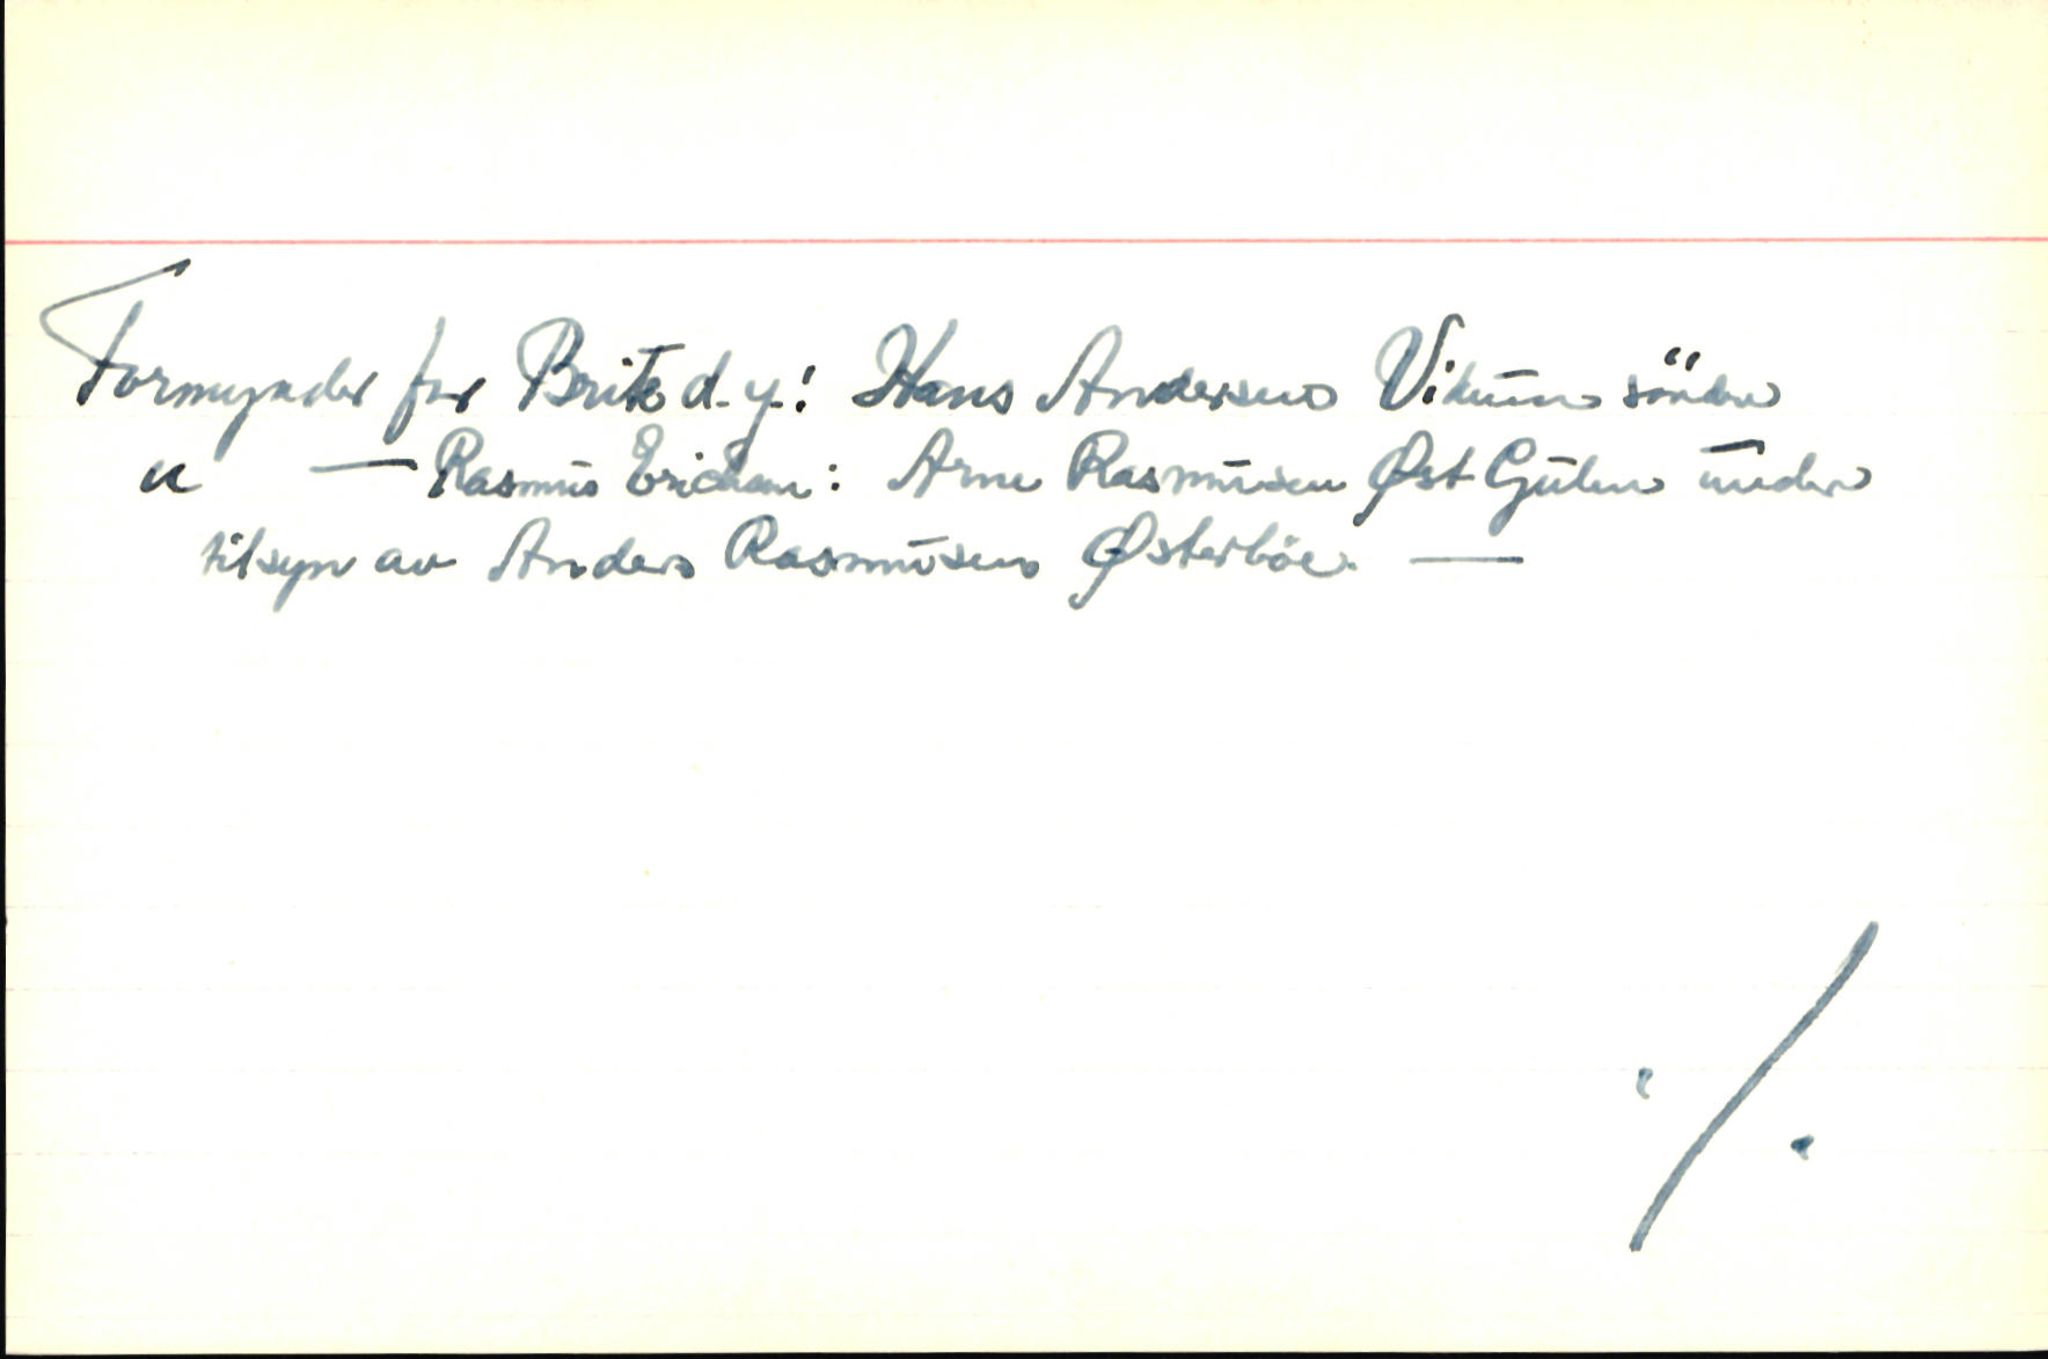 Formynder for Brite d.y.: Hans Andersen Vikum söndre
" — Rasmus Ericksen: Arne Rasmusen Øst Gulen under
tilsyn av Anders Rasmusen Østerböe. —
./.